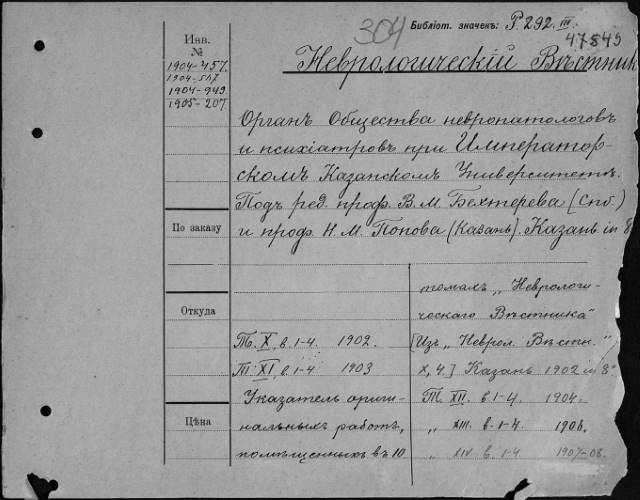 304
Библіот. значекъ: P.292.III.
47845
Инв.
№
1904-457.
1904-547
1904-949.
1905-207.
Неврологическій Вѣстник
Органъ Общества невропатологовъ
и психіатровъ при Император-
скомъ Казанскомъ Университетѣ.
Подъ ред. проф. В. М. Бехтерева (Спб.)
и проф. Н. М. Попова (Казань). Казань. in 8
По заказу
Откуда
Цѣна
Т. X, в. 1-4. 1902.
Т. XI, в. 1-4 1903
Указатель ориги-
нальныхъ работъ,
помѣщенныхъ въ 10
томахъ „Неврологи-
ческаго Вѣстника"
[Изъ „Неврол. Вѣстн."
X, 4.] Казань 1902 in 8°
Т. XII. в. 1-4. 1904.
„ XIII. в. 1-4. 1906.
„ XIV в. 1-4 1907-08.